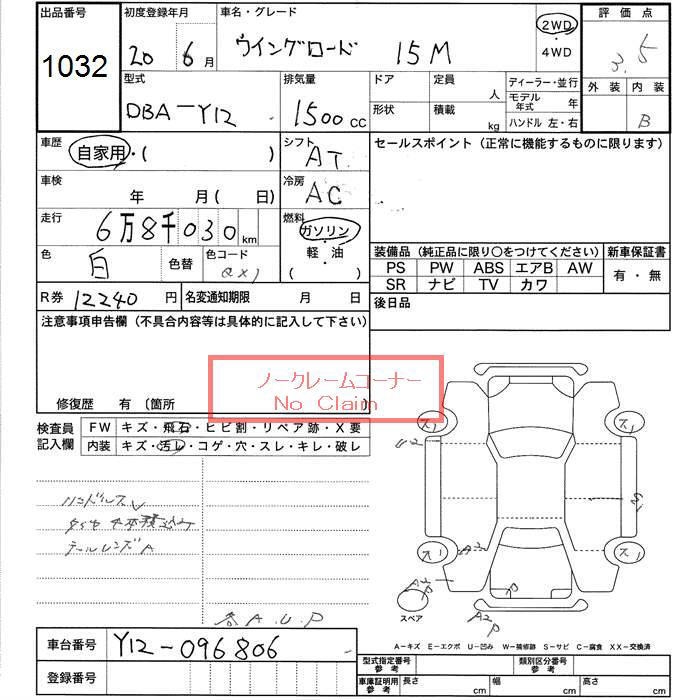 出品番号 初度登録年月 車名・グレード 評価点
1032 20 6月 ウイングロード 15M 2WD・4WD 3.5
外装 内装
B
型式 排気量 ドア 定員 人 ディーラー・並行
DBA-Y12 1500cc 形状 積載 kg モデル年式 年
ハンドル 左・右
車歴 自家用・( ) シフト AT セールスポイント（正常に機能するものに限ります）
車検 年 月( 日) 冷房 AC
走行 6万8千030km 燃料 ガソリン・軽・油( )
色 白 色替 色コード QX1
装備品（純正品に限り○をつけてください） 新車保証書
PS PW ABS エアB AW 有・無
SR ナビ TV カワ
R券 12240円 名変通知期限 月 日 後日品
注意事項申告欄（不具合内容等は具体的に記入して下さい）
ノークレームコーナー
No Claim
修復歴 有（箇所
検査員記入欄 FW キズ・飛石・ヒビ割・リペア跡・X要
内装 キズ・汚レ・コゲ・穴・スレ・キレ・破レ
ハンドルスレ
タイヤ4本積込み
テールレンズA
各A.U.P
ス1 ス1
U2
ス1 ス1
A2
スペア
A2P
A－キズ E－エクボ U－凹み W－補修跡 S－サビ C－腐食 XX－交換済
車台番号 Y12-096806
登録番号
型式指定番号 参考 類別区分番号 参考
車庫証明用 参考 長さ cm 幅 cm 高さ cm